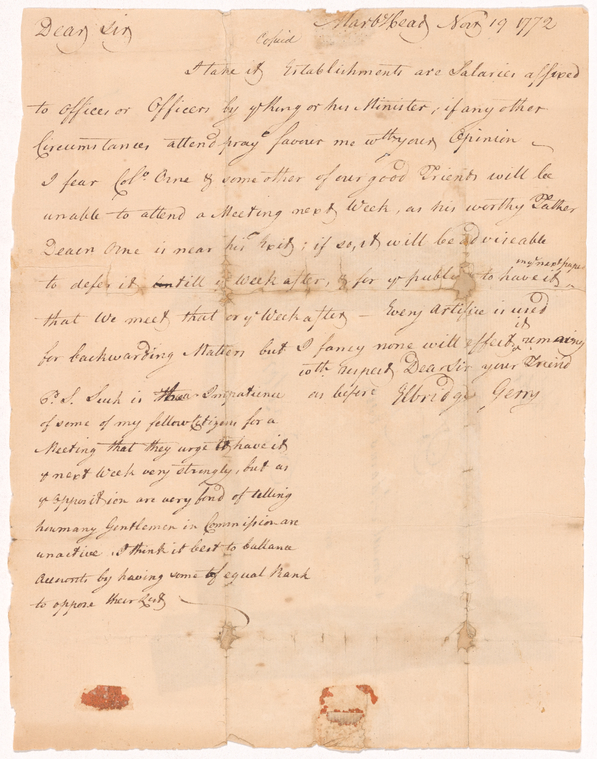 Dear Sir
Marbl Head Novr 19 1772
Copied
I take it Establishments are Salaries affixed
to Offices or Officers by ye King or his Minister, if any other
Circumstances attend pray favour me wth your Opinion
I fear Colo. Orne & some other of our good Friends will be
unable to attend a Meeting next Week, as his worthy Father
Deacn Orne is near his Exit; if so, it will be adviseable
to defer it till ye Week after, & for ye publ to have it
my next paper
that We meet that or ye Week after — Every Artifice is used
for backwarding Matters but I fancy none will effect it remaing
with respect Dear Sir your Friend
as before Elbridge Gerry
P. S. Such is the Impatience
of some of my fellow Citizens for a
Meeting that they urge to have it
ye next Week very strongly, but as
ye Opposition are very fond of telling
how many Gentlemen in Commission are
unactive. I think it best to ballance
Accounts by having some of equal Rank
to oppose their List